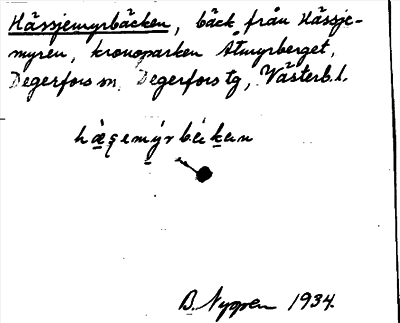 Hässjemyrbäcken, bäck från Hässje-
myren, kronoparken Åmyrberget,
Degerfors sn, Degerfors tg, Västerb. l.
B. Nygren 1934.